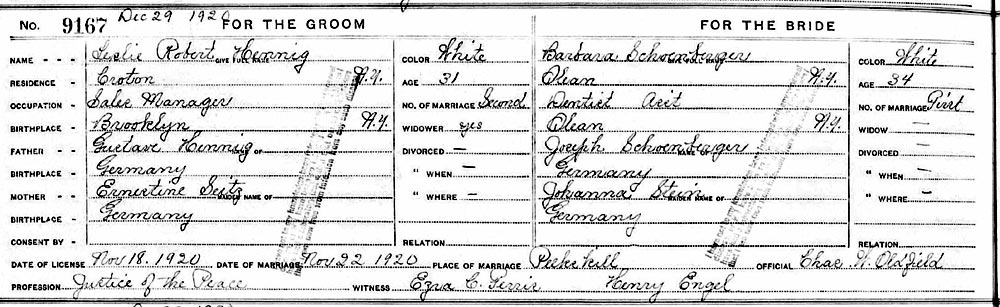 No. 9167 Dec 29 1920 FOR THE GROOM FOR THE BRIDE
NAME - - - Leslie Robert Hennig GIVE FULL NAME COLOR White Barbara Schoenberger COLOR White
RESIDENCE - Croton N.Y. AGE 31 Olean N.Y. AGE 34
OCCUPATION - Sales Manager NO. OF MARRIAGE Second Dentist Asit NO. OF MARRIAGE First
BIRTHPLACE - Brooklyn N.Y. WIDOWER yes Olean N.Y. WIDOW —
FATHER - Gustave Hennig NAME OF DIVORCED — Joseph Schoenberger NAME OF DIVORCED —
BIRTHPLACE - Germany " WHEN — Germany " WHEN —
MOTHER - Ernertine Seitz MAIDEN NAME OF " WHERE — Johanna Stein MAIDEN NAME OF " WHERE —
BIRTHPLACE - Germany Germany
CONSENT BY - RELATION RELATION
DATE OF LICENSE Nov 18. 1920 DATE OF MARRIAGE Nov 22 1920 PLACE OF MARRIAGE Peekskill OFFICIAL Chas W. Oldfield
PROFESSION Justice of the Peace WITNESS Ezra C. Ferris Henry Engel